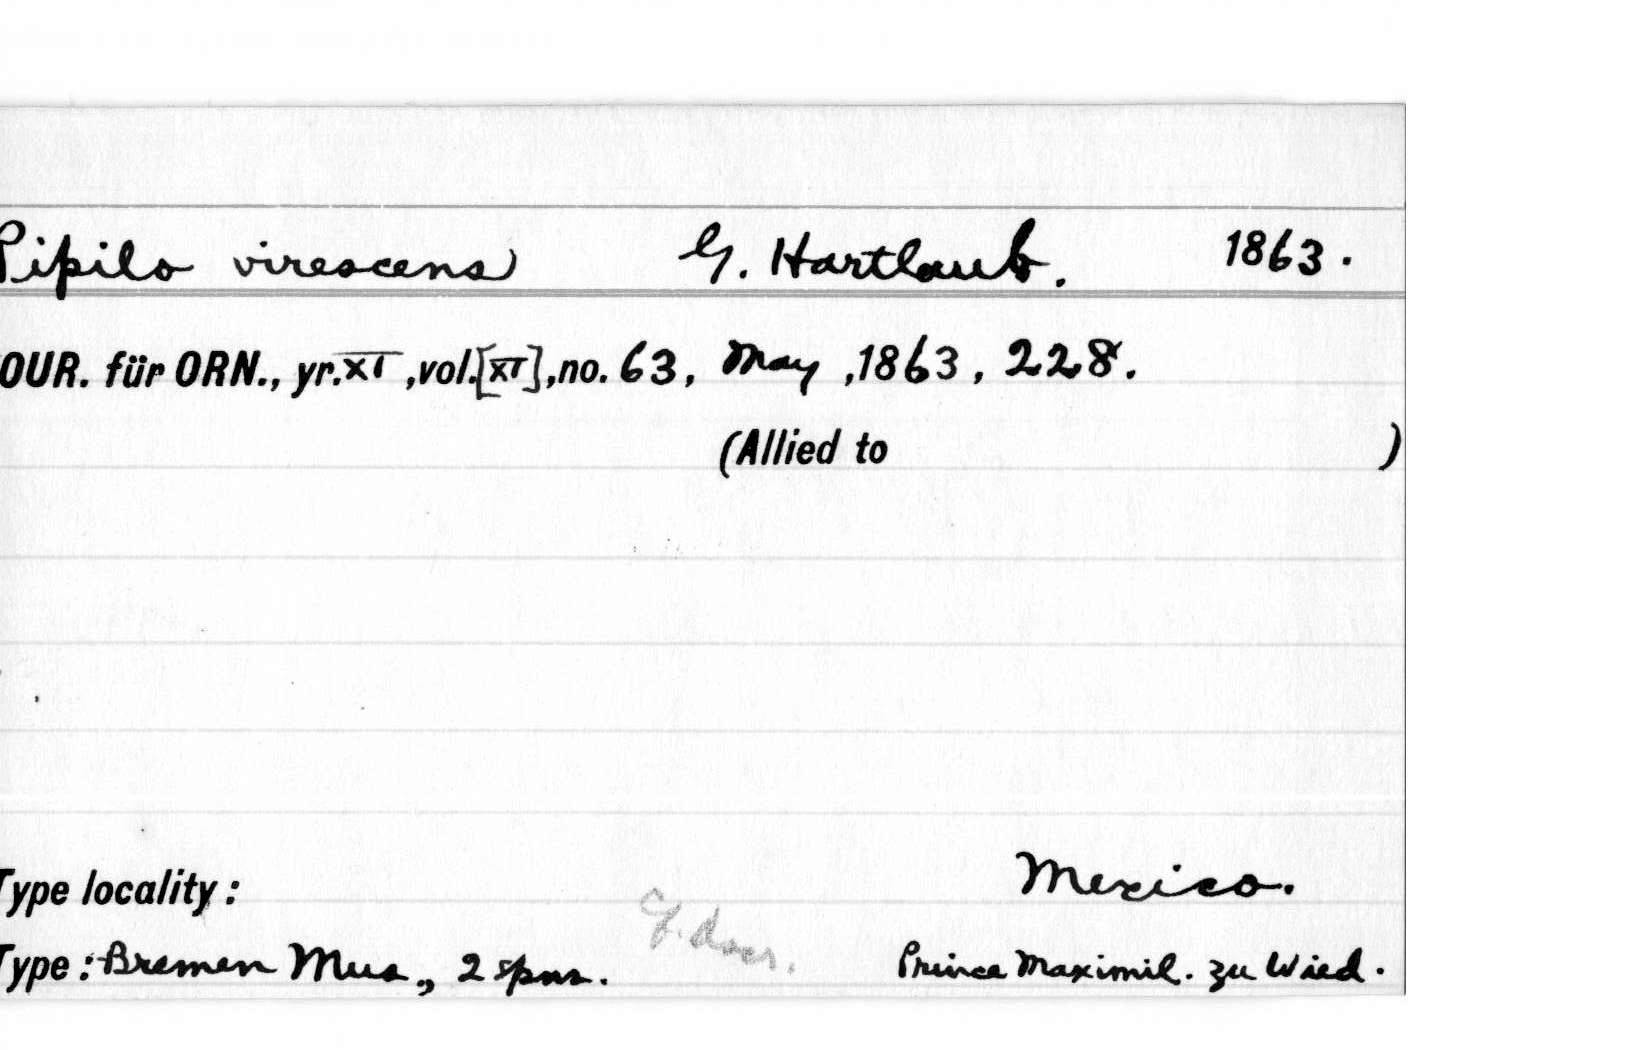 Pipilo virescens G. Hartlaub. 1863.
OUR. für ORN., yr. XI, vol. [XI], no. 63, May, 1863, 228.
(Allied to )
Type locality: Mexico.
Type: Bremen Mus., 2 spms. Prince Maximil. zu Wied.